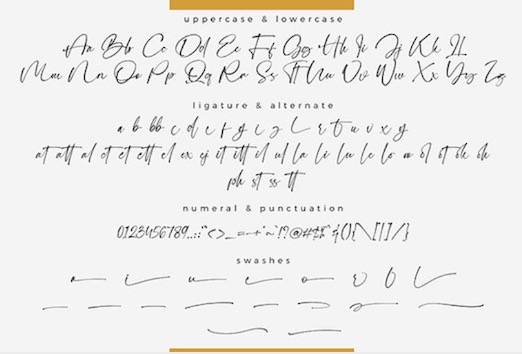 uppercase & lowercase
Aa Bb Cc Dd Ee Ff Gg Hh Ii Jj Kk Ll
Mm Nn Oo Pp Qq Rr Ss Tt Uu Vv Ww Xx Yy Zz
ligature & alternate
a b bb c d e f g i j l r t u v x y
at att al ct et ett el ex ej it itt il ul la li lu le lo oo ol ot oh
ph st ss tt
numeral & punctuation
0123456789
swashes
a i u e o